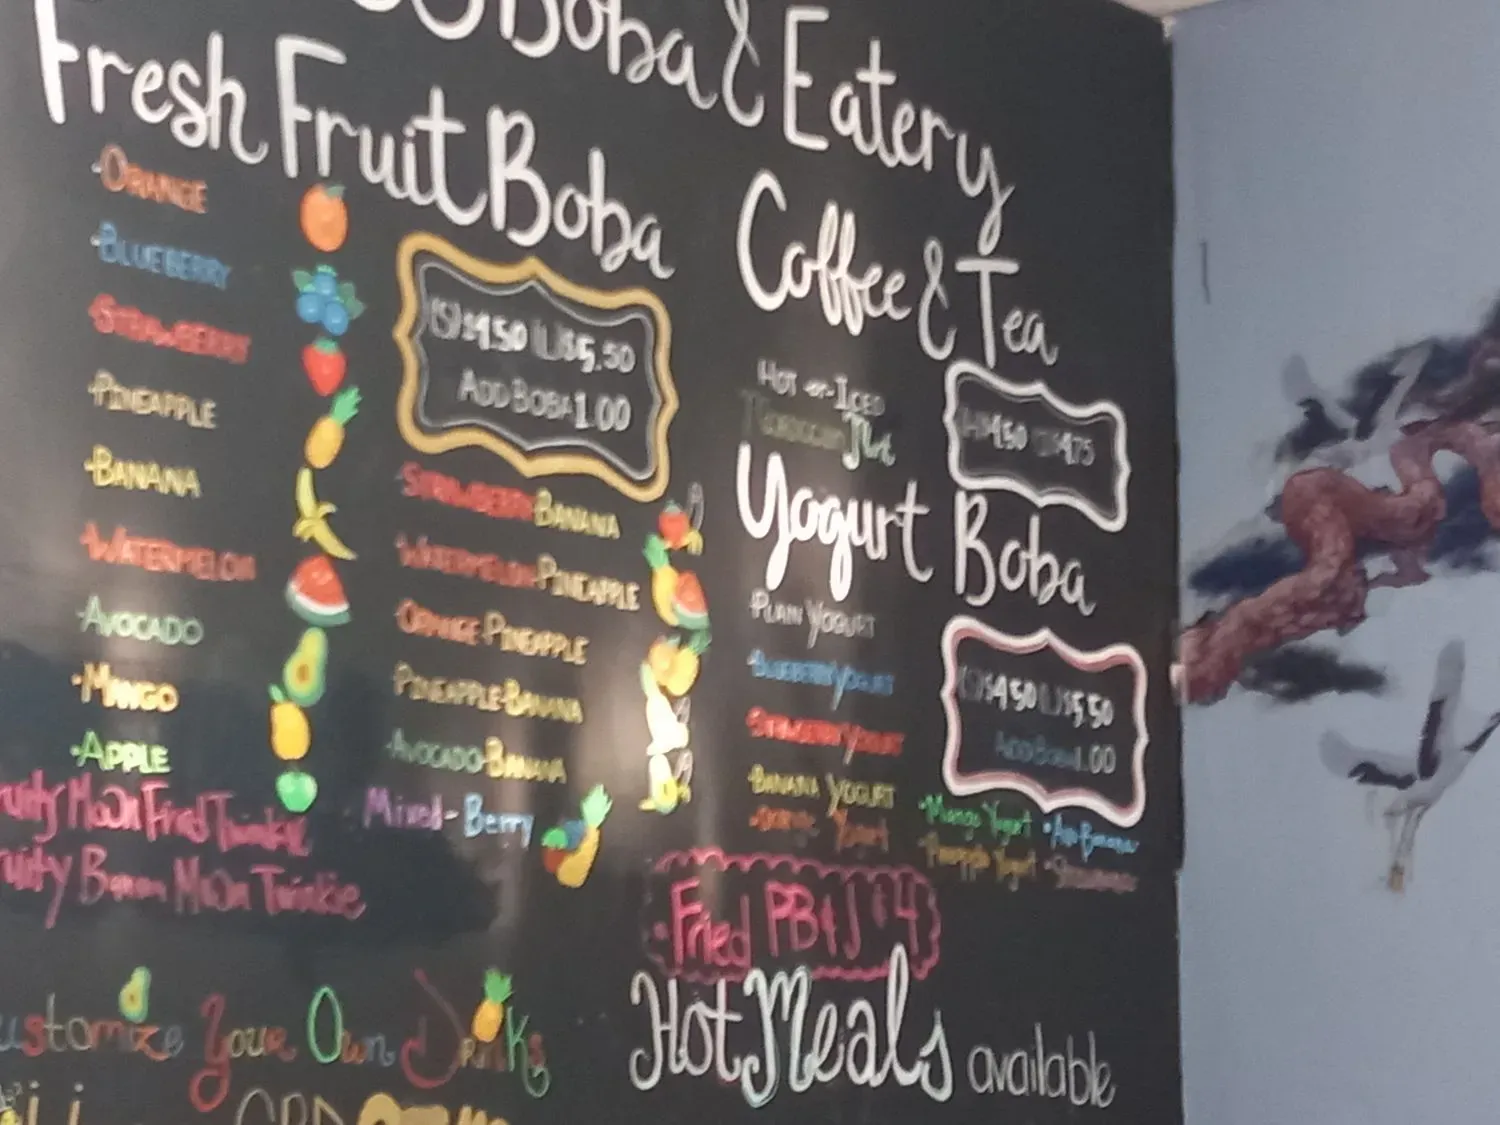 Boba & Eatery
Fresh Fruit Boba
-ORANGE
-BLUEBERRY
-STRAWBERRY
-PINEAPPLE
-BANANA
-WATERMELON
-AVOCADO
-MANGO
-APPLE
(S)$4.50 (L)$5.50
ADD BOBA 1.00
-STRAWBERRY-BANANA
-WATERMELON-PINEAPPLE
-ORANGE-PINEAPPLE
-PINEAPPLE-BANANA
-AVOCADO-BANANA
Mixed-Berry
Moon Fried Twinkie
Moon Twinkie
Coffee & Tea
HOT or ICED
Yogurt Boba
-PLAIN YOGURT
-BLUEBERRY YOGURT
-STRAWBERRY YOGURT
-BANANA YOGURT
Yogurt
(S)$4.50 (L)$5.50
ADD BOBA 1.00
-Mango Yogurt
-Pineapple Yogurt
-Fried PB&J $4
Hot Meals available
Your Own Drinks
CBD